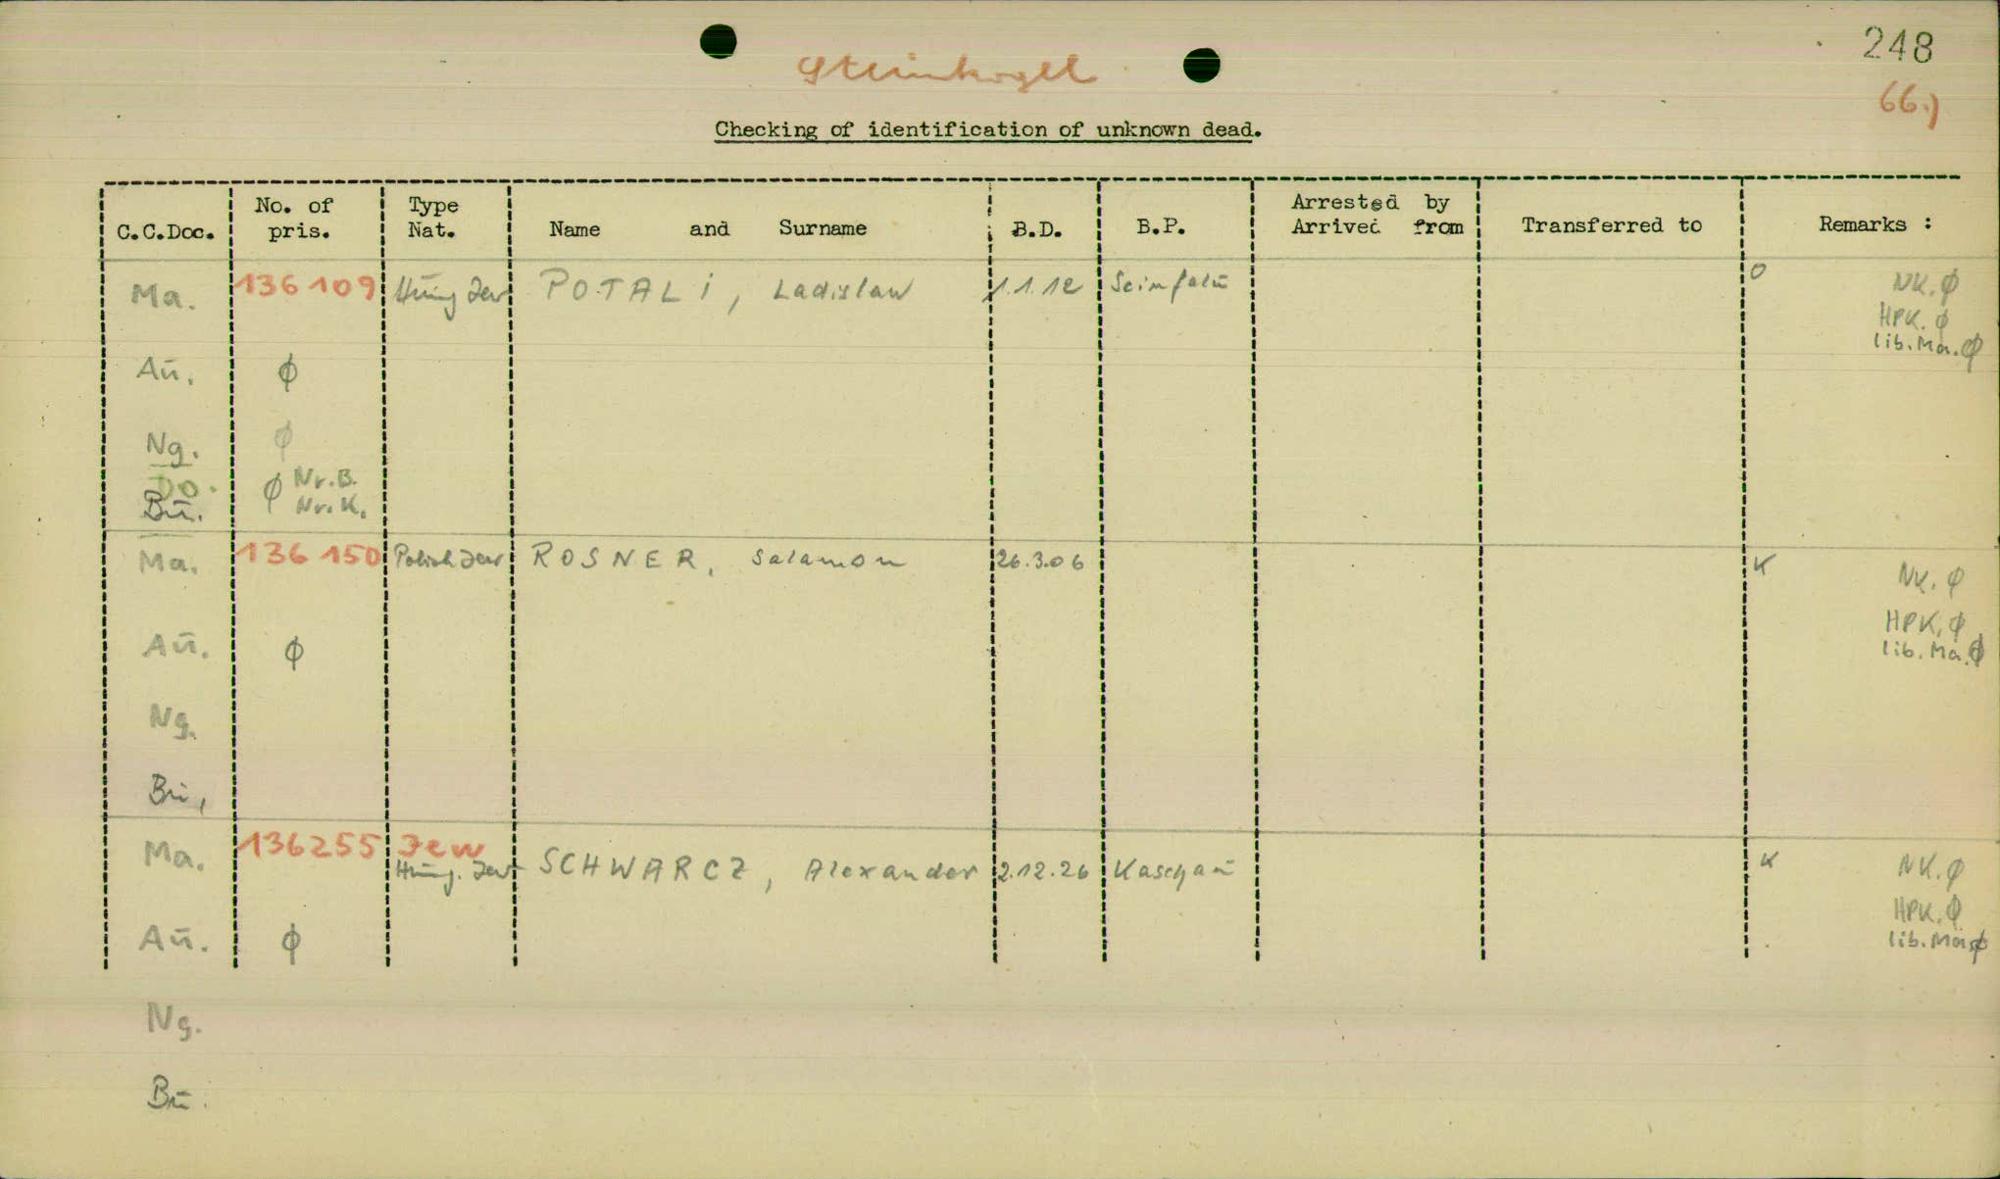 248
66.)
Checking of identification of unknown dead.
C.C.Doc. No. of pris. Type Nat. Name and Surname B.D. B.P. Arrested by Arrived from Transferred to Remarks :
Ma. 136 109 Hung Jew POTALI, Ladislaw 1.1.12 O NK. ϕ
HPK. ϕ
lib. Ma. ϕ
Aū. ϕ
Ng. ϕ
Do. ϕ Nr. B.
Bū. Nr. K.
Ma. 136 150 Polish Jew ROSNER, Salamon 26.3.06 K NK. ϕ
HPK. ϕ
lib. Ma. ϕ
Aū. ϕ
Ng.
Bū.
Ma. 136255 Jew
Hung. Jew SCHWARCZ, Alexander 2.12.26 Kaschaū K NK. ϕ
HPK. ϕ
lib. Ma. ϕ
Aū. ϕ
Ng.
Bū.